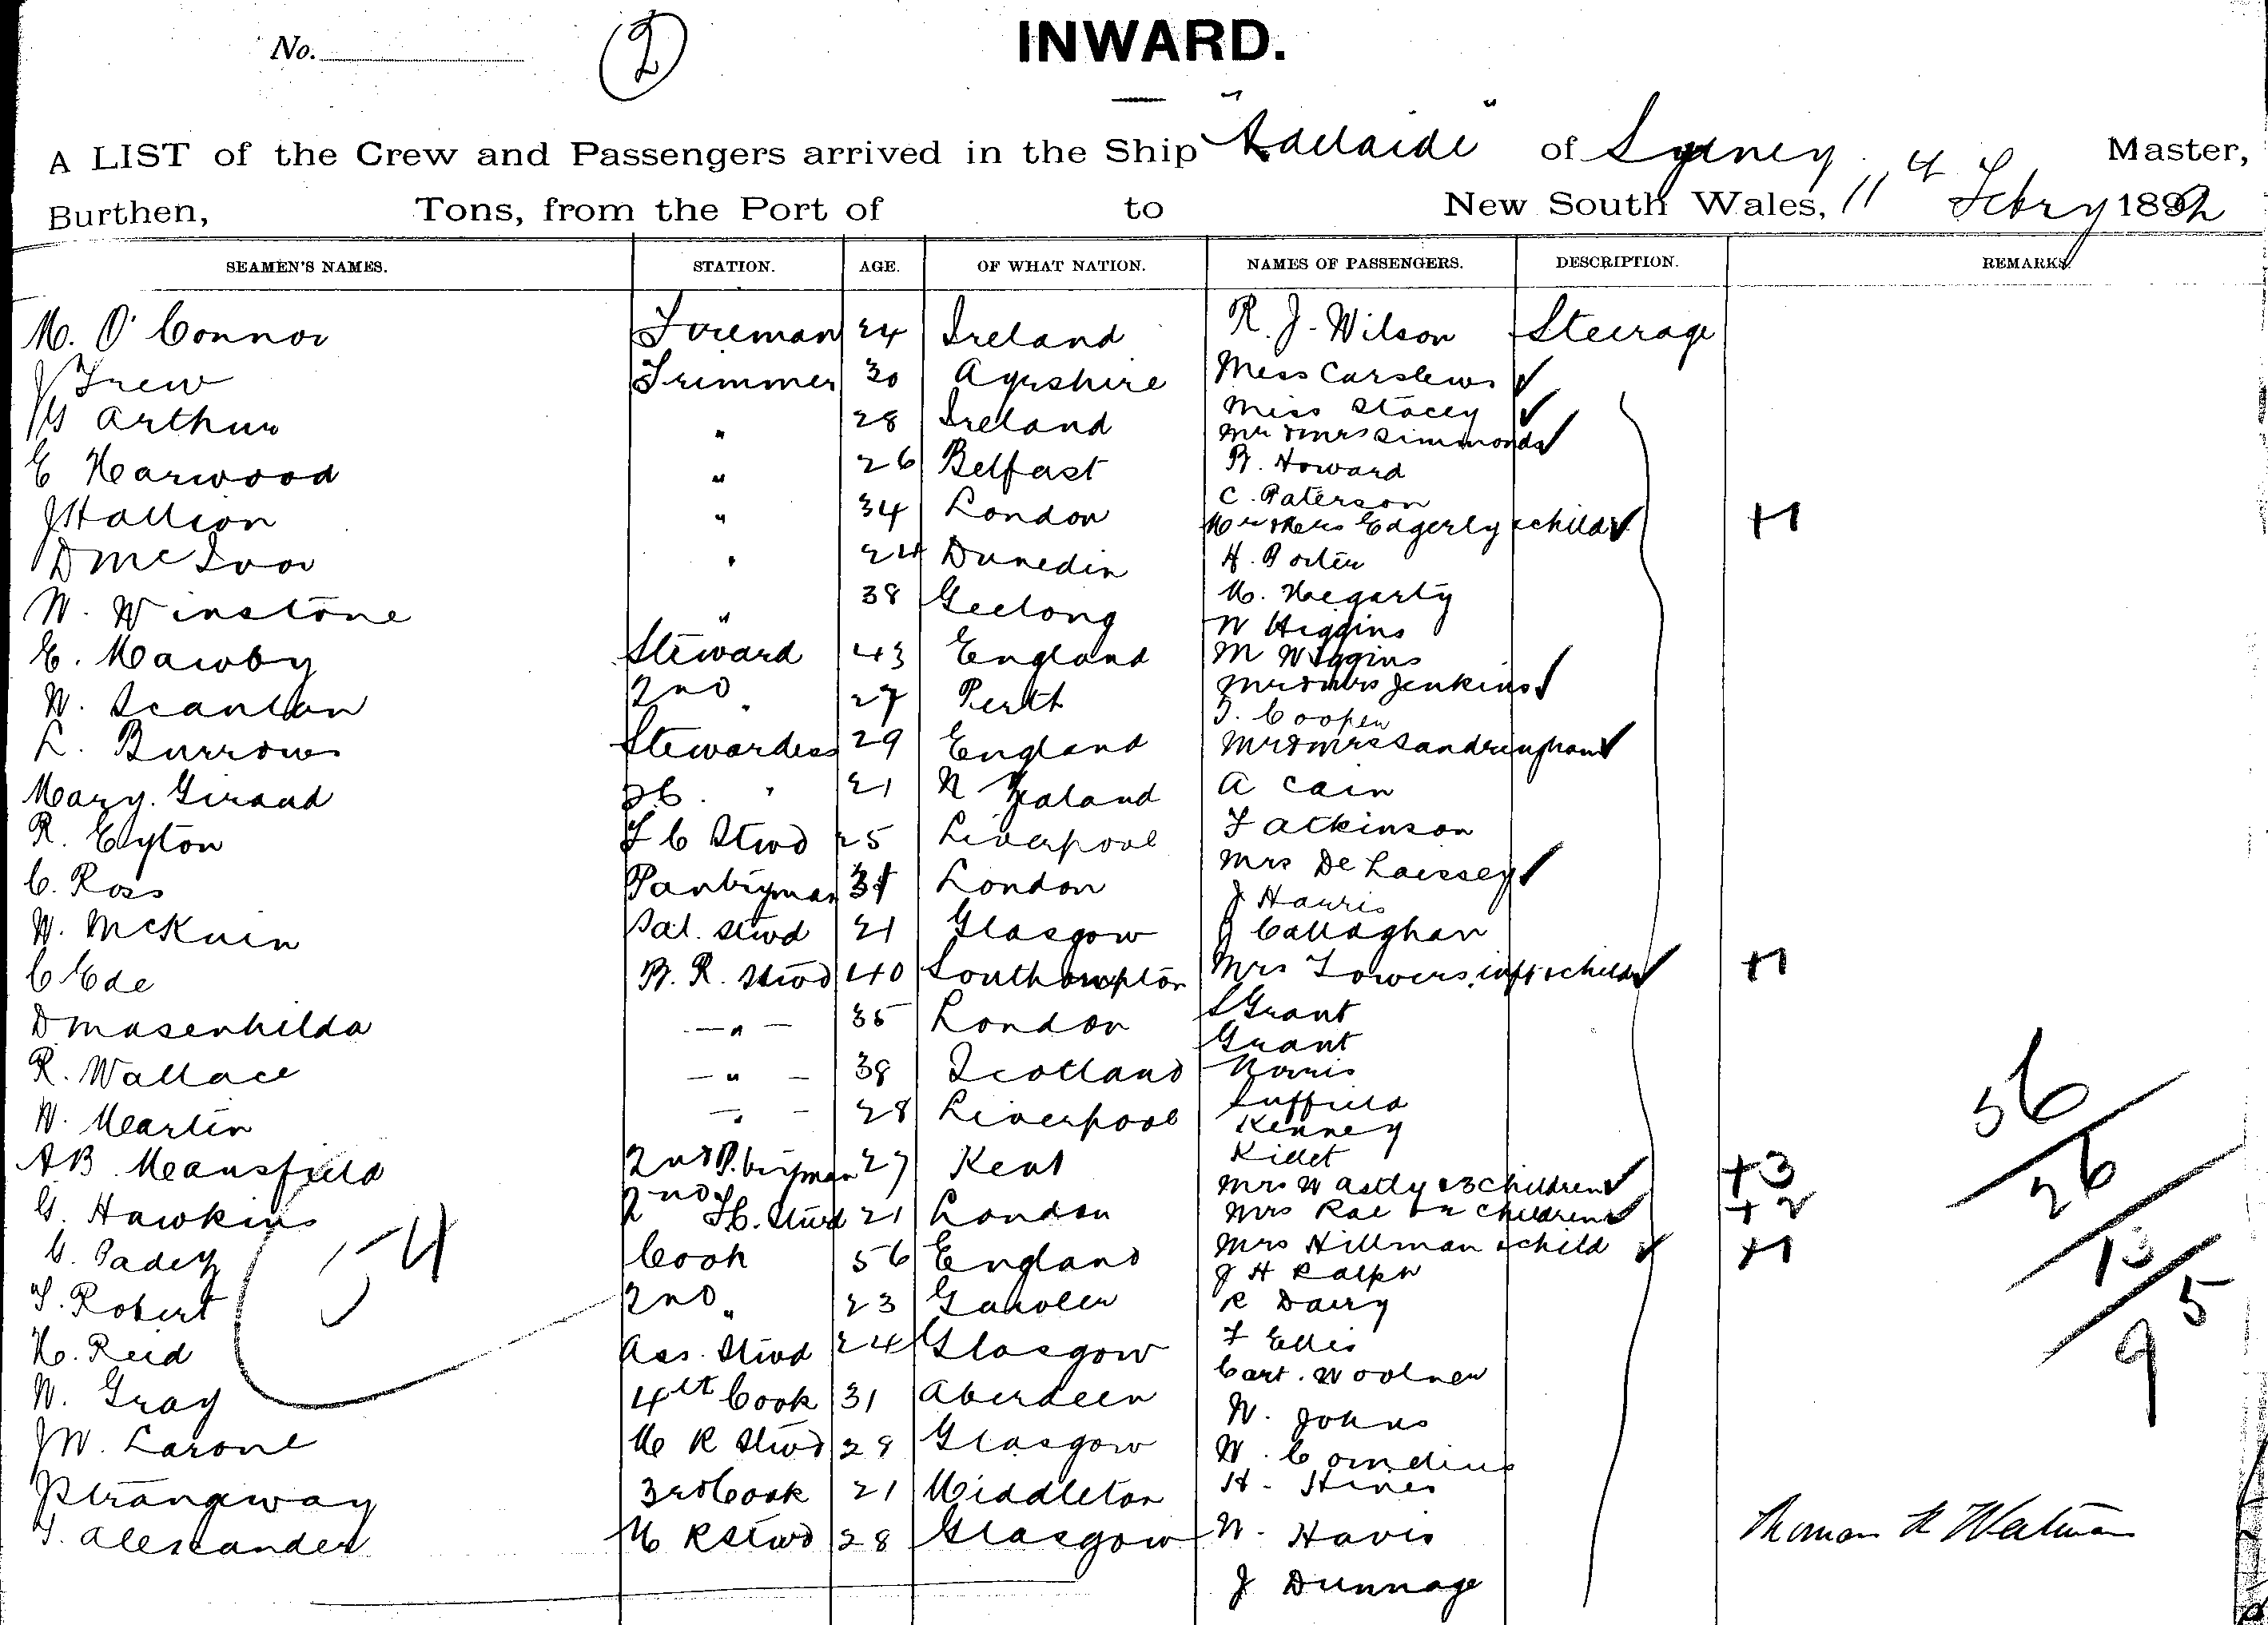 No.
2
INWARD.
A LIST of the Crew and Passengers arrived in the Ship "Adelaide" of Sydney, Master,
Burthen, Tons, from the Port of to New South Wales, 11th Febry 1892
SEAMEN'S NAMES. STATION. AGE. OF WHAT NATION. NAMES OF PASSENGERS. DESCRIPTION. REMARKS.
M. O'Connor Fireman 24 Ireland R. J. Wilson Steerage
J Frew Trimmer 30 Ayrshire Miss Carslews
Arthur " 28 Ireland Miss Stacey
Mr & Mrs Simmonds
E Harwood " 26 Belfast B. Howard
C. Paterson
J Hallion " 34 London Mr & Mrs Edgerly & child +1
D McIvor " 24 Dunedin H. Porter
W. Winstone " 38 Geelong M. Hegarty
W Higgins
E. Mawby Steward 43 England M Wiggins
W. Scanlan 2nd " 27 Perth Mr & Mrs Jenkins
T. Cooper
L. Burrows Stewardess 29 England Mr & Mrs Sandringham
Mary Giraud " 21 N Zealand A Cain
R. Eyton F C Stwd 25 Liverpool F Atkinson
C. Ross Pantryman London Mrs De Laissey
J Harris
W. McKuin Sal. Stwd 21 Glasgow J Callaghan
C Ede B. R. Stwd 40 Southampton Mrs Towers, inft & child +1
D Masenhilda " 35 London S Grant
Grant
R. Wallace " 38 Scotland Norris
Suffield
W. Martin " 28 Liverpool Kenney
AB Mansfield 2nd P.tryman 27 Kent Killet
Mrs W Astly & 3 children +3
G. Hawkins 2nd F.C. Stwd 21 London Mrs Rae & 2 children +2
G. Padey Cook 56 England Mrs Hillman & child +1
J H Ralph
T. Robert 2nd " 23 R Dairy
H. Reid Ass. Stwd 24 Glasgow F Ellis
W. Gray 4th Cook 31 Aberdeen Cart. Woolner
W. Johns
J W. Larone M R Stwd 28 Glasgow W. Cornelius
J Strangway 3rd Cook 21 Middleton H. Hines
T. Alexander M R Stwd 28 Glasgow W. Havis
J Dunnage
54
56
26
13
95
Thomas